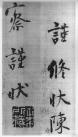 謹修狀陳
察謹狀